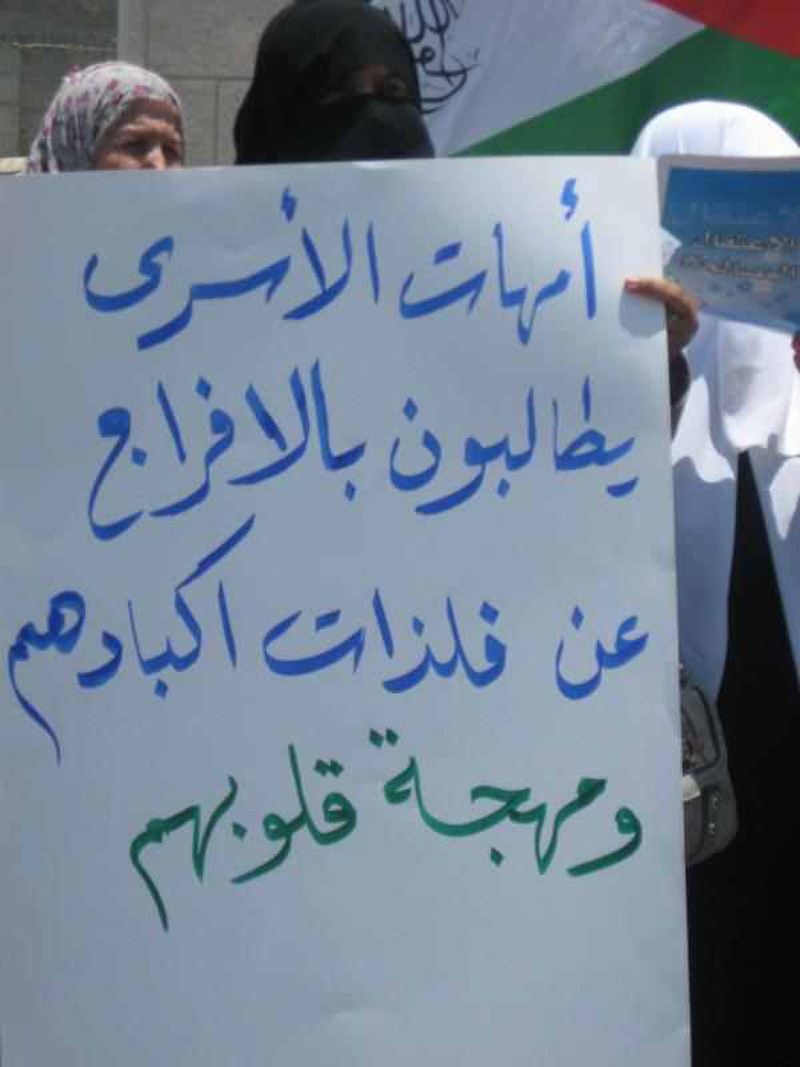 أمهات الأسرى
يطالبون بالافراج
عن فلذات اكبادهم
ومهجة قلوبهم